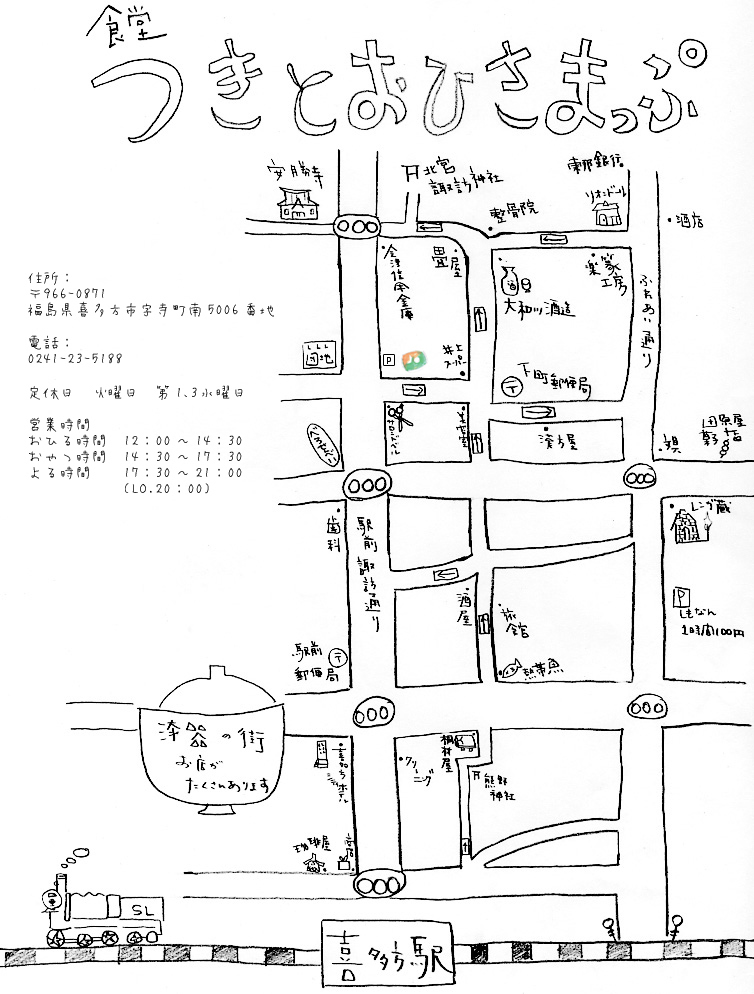 食堂
つきとおひさまっぷ
安勝寺
北宮
諏訪神社
東邦銀行
整骨院
リオンドール
酒店
会津信用金庫
畳屋
大和川酒造
楽篆
工房
ふれあい通り
住所：
〒966-0871
福島県喜多方市字寺町南5006番地
電話：
0241-23-5188
定休日 火曜日 第1、3水曜日
営業時間
おひる時間 12：00～14：30
おやつ時間 14：30～17：30
よる時間 17：30～21：00
(LO.20：00)
団地
P
井上
スーパー
〒
下町郵便局
漢方屋
歯科
駅前諏訪通り
レンガ蔵
P
しもなん
1時間100円
酒屋
旅館
熱帯魚
駅前
郵便局
〒
漆器の街
お店が
たくさんあります
喜多方シティホテル
クリーニング
棺材屋
熊野
神社
珈琲屋
SL
喜多方駅